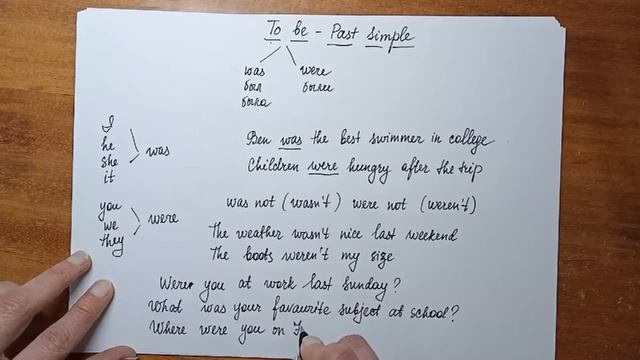 To be - Past Simple
was were
был были
была
I
he
she
it
was
you
we
they
were
Ben was the best swimmer in college
Children were hungry after the trip
was not (wasn't) were not (weren't)
The weather wasn't nice last weekend
The boots weren't my size
Were you at work last Sunday?
What was your favourite subject at school?
Where were you on